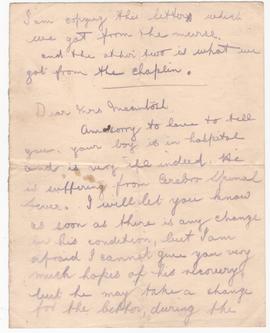 I am copying this letter which
we got from the nurse.
and the other two is what we
got from the chaplin.
Dear Mrs Mcintosh
Am sorry to have to tell
you. your boy is in hospital
and is very ill indeed. He
is suffering from Cerebro Spinal
Fever. I will let you know
as soon as there is any change
in his condition, but I am
afraid I cannot give you very
much hopes of his recovery,
but he may take a change
for the better, during the